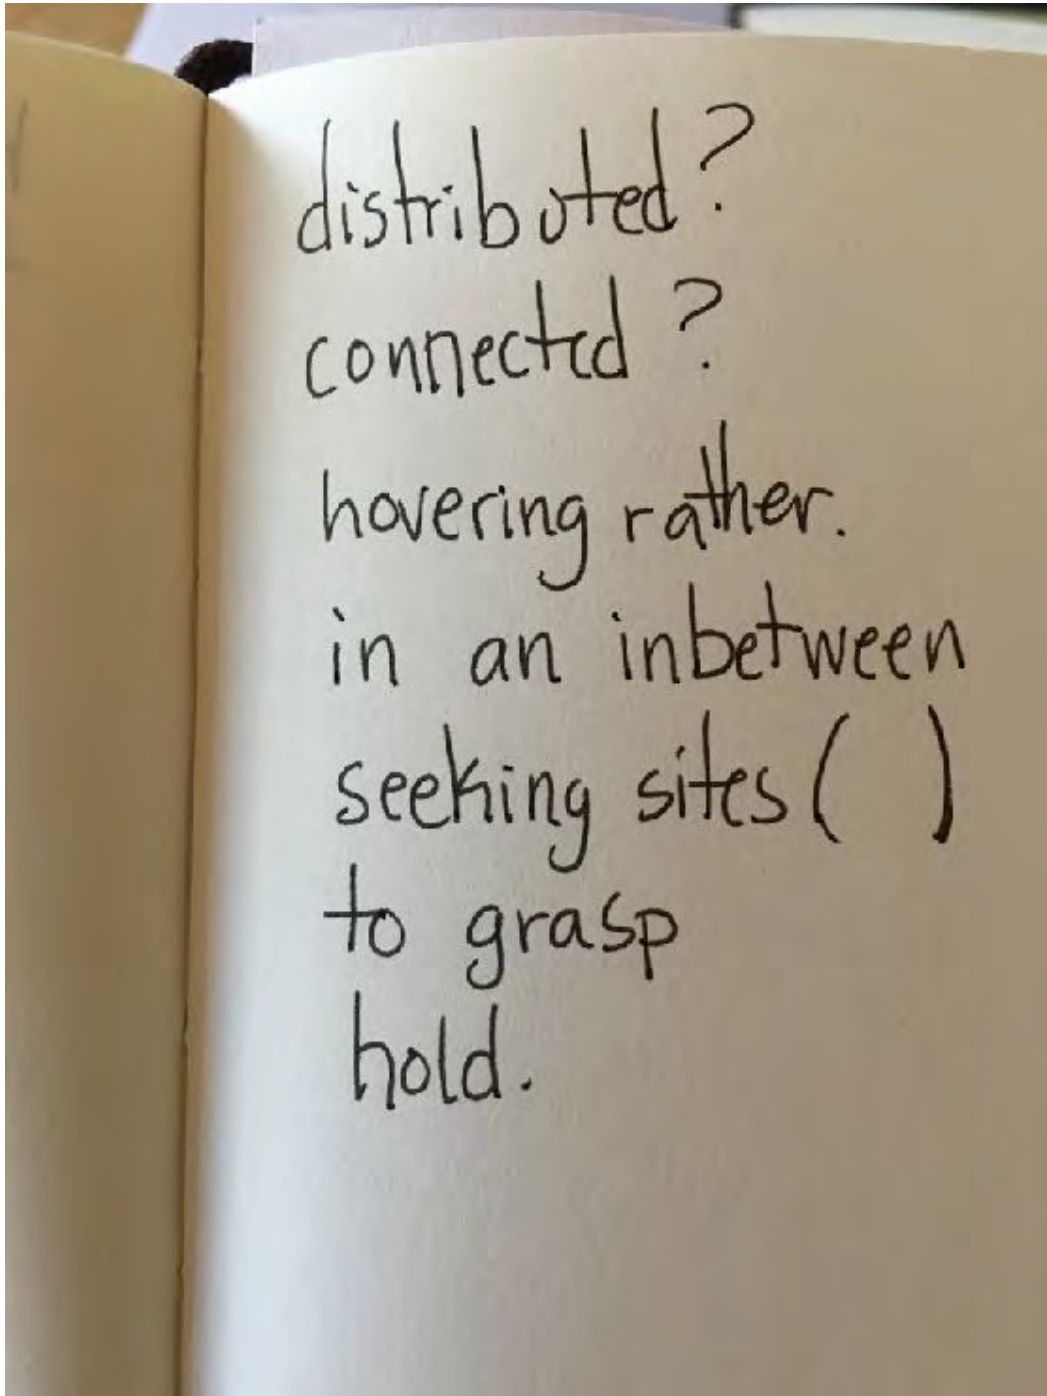 distributed?
connected?
hovering rather.
in an inbetween
seeking sites ( )
to grasp
hold.